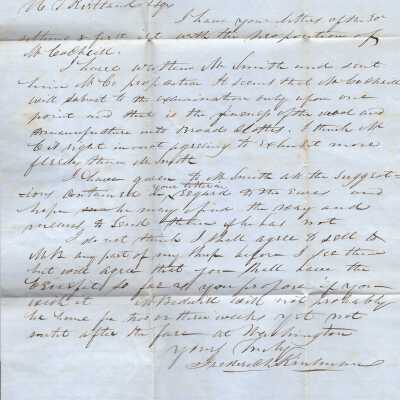 I have your letter of the 30
with the proposition of
Mr Cockrill.
I have written Mr Smith and sent
him Mr Cs proposition It seems that Mr Cockrill
will submit to the examination only upon one
point and that is the fineness of the wool and
manufacture into Broad Cloths. I think Mr
C is right in not agreeing to exhibit more
fleeces than Mr Smith
I have given to Mr Smith all the suggest-
ions contained in your letter in regard to the Ewes and
hope he may find the way and
means to send them if he has not
I do not think I shall agree to sell to
Mr R any part of my Buck before I see them
but will agree that you shall have the
benefit so far as you propose if you
wish it will not probably
be home for two or three weeks yet not
until after the fair at Washington
Yours Truly
Frederick Kinsman